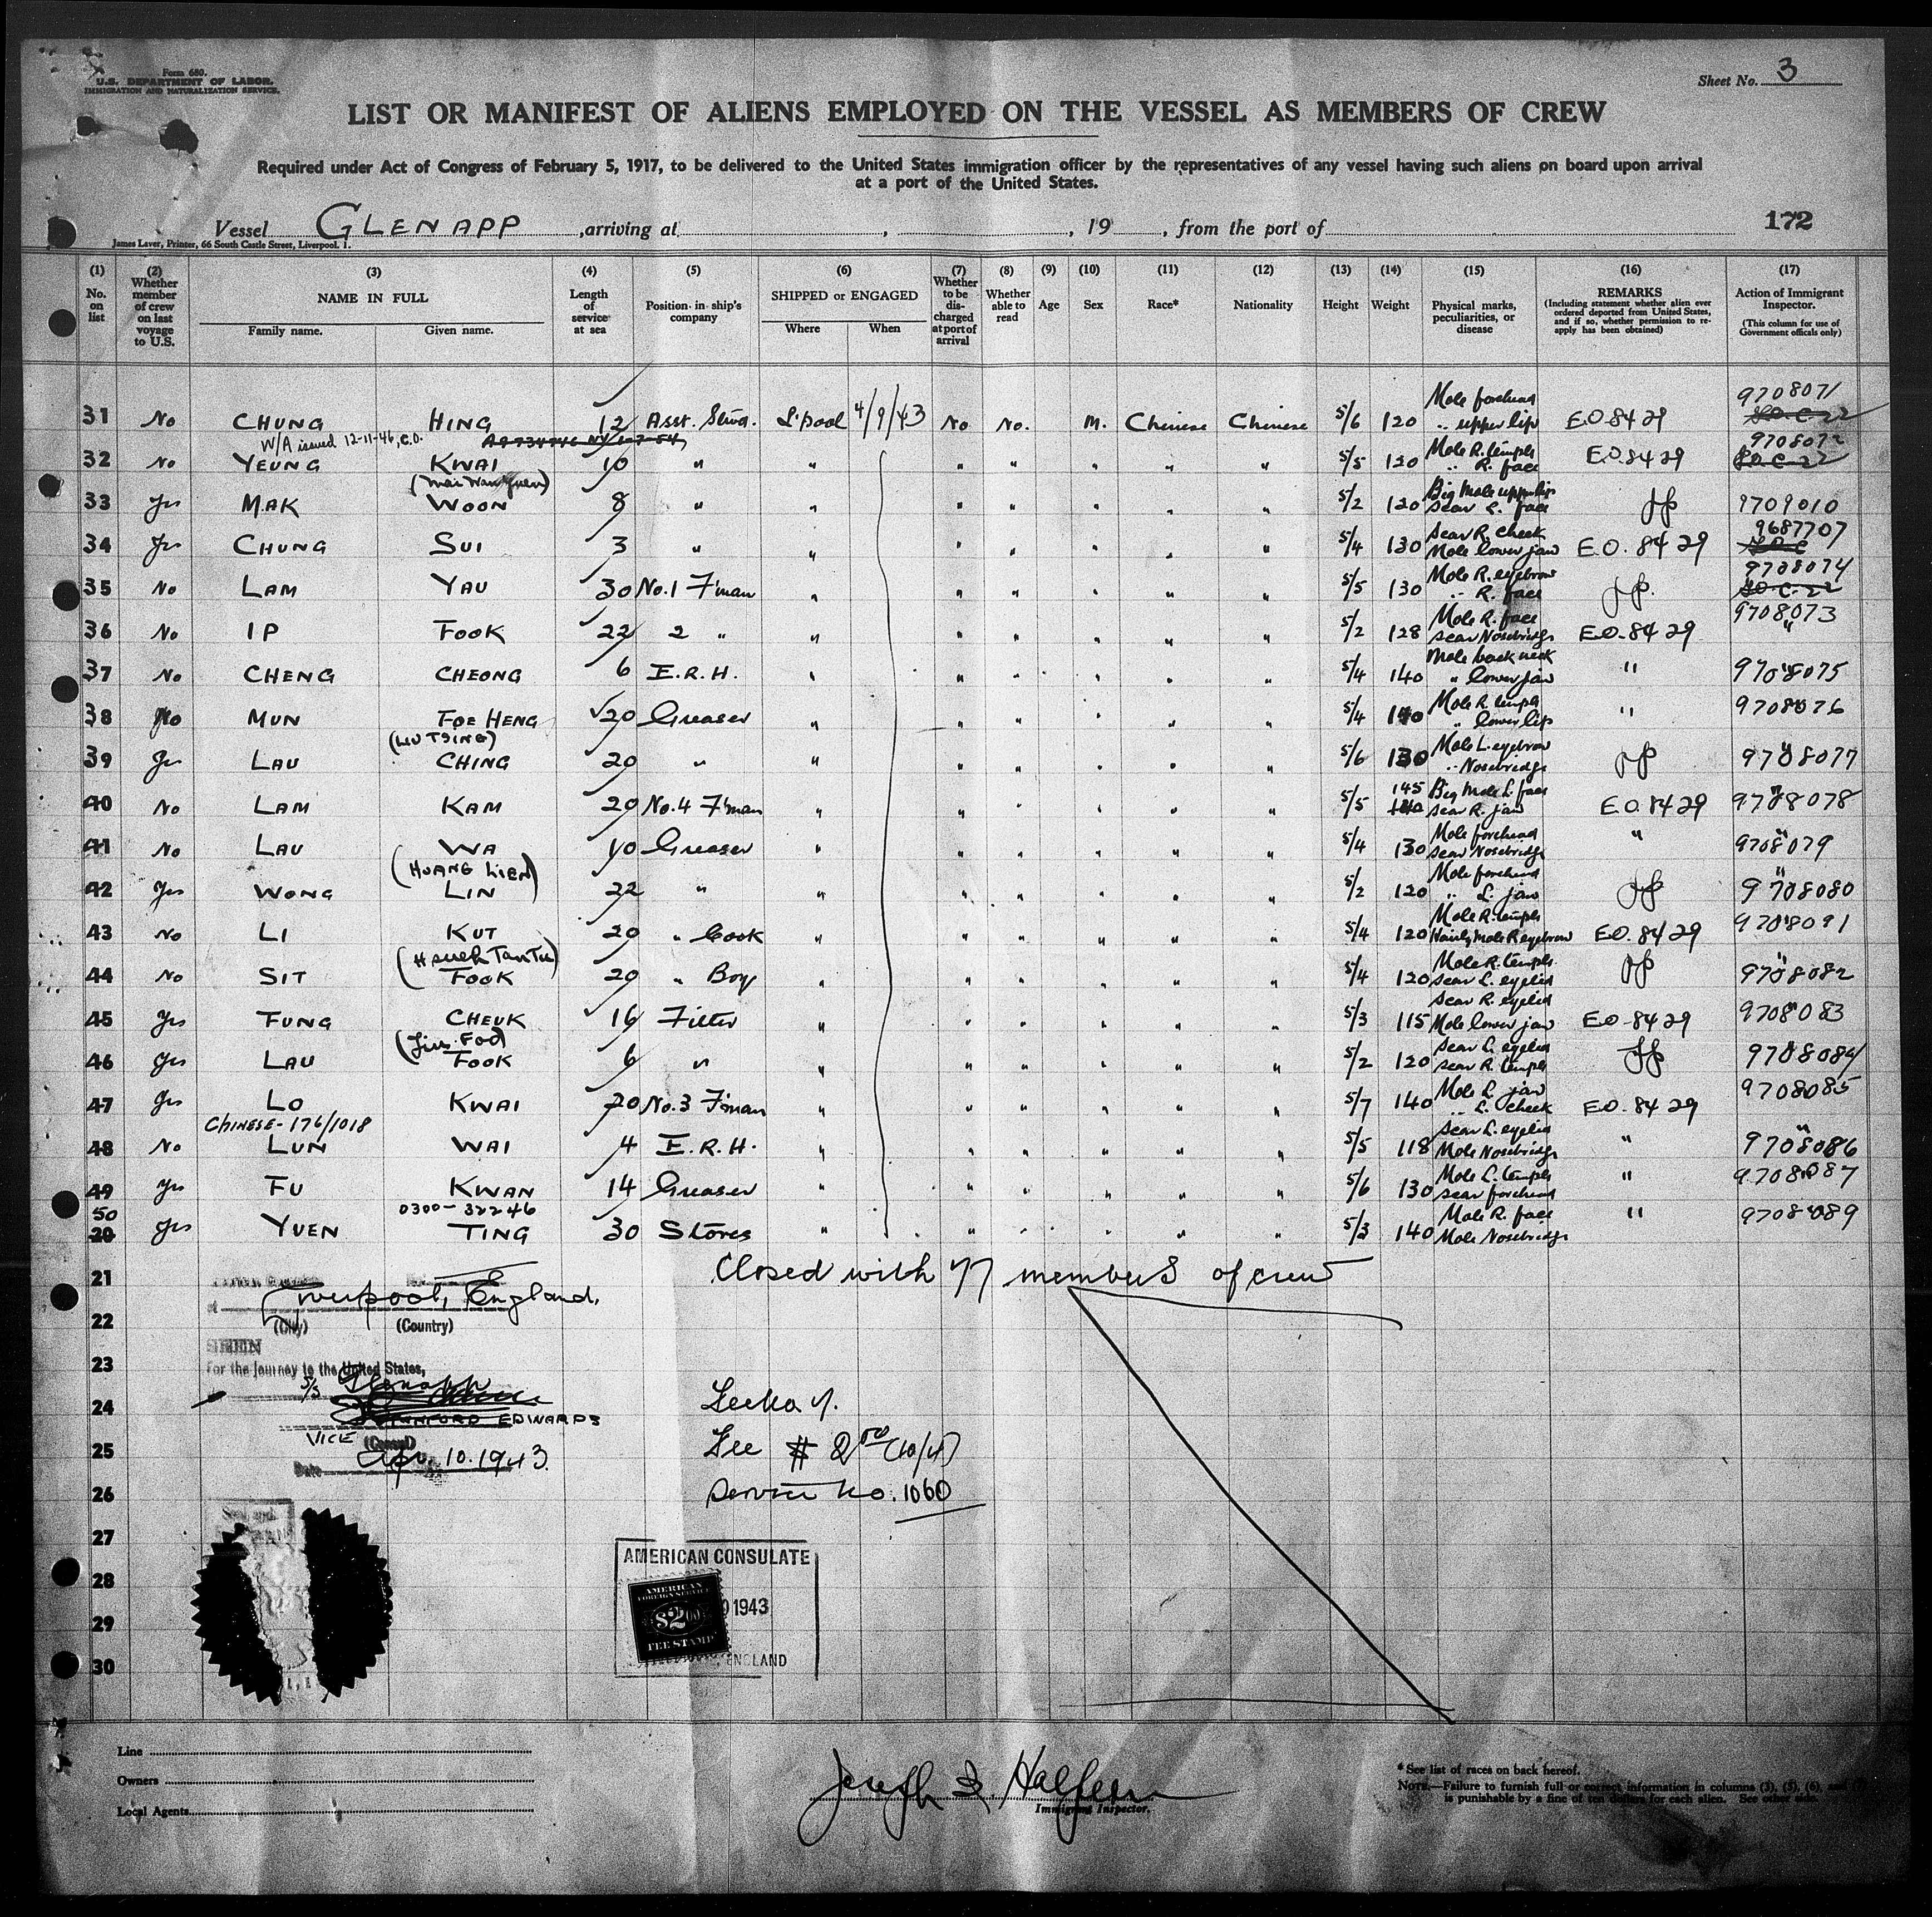 Form 680.
U.S. DEPARTMENT OF LABOR.
IMMIGRATION AND NATURALIZATION SERVICE.
Sheet No. 3
LIST OR MANIFEST OF ALIENS EMPLOYED ON THE VESSEL AS MEMBERS OF CREW
Required under Act of Congress of February 5, 1917, to be delivered to the United States immigration officer by the representatives of any vessel having such aliens on board upon arrival
at a port of the United States.
Vessel GLENAPP, arriving at , , 19 , from the port of 172
James Laver, Printer, 66 South Castle Street, Liverpool. 1.
(1) No. on list (2) Whether member of crew on last voyage to U.S. (3) NAME IN FULL Family name. Given name. (4) Length of service at sea (5) Position in ship's company (6) SHIPPED or ENGAGED Where When (7) Whether to be discharged at port of arrival (8) Whether able to read (9) Age (10) Sex (11) Race* (12) Nationality (13) Height (14) Weight (15) Physical marks, peculiarities, or disease (16) REMARKS (Including statement whether alien ever ordered deported from United States, and if so, whether permission to re-apply has been obtained) (17) Action of Immigrant Inspector. (This column for use of Government officials only)
31 No CHUNG HING 12 Asst. Stwd. L'pool 4/9/43 No No. M. Chinese Chinese 5/6 120 Mole forehead " upper lip E.O 8429 9708071
W/A issued 12-11-46, C.O.
32 No YEUNG KWAI 10 " " " " " " " 5/5 130 Mole R. temple " R. face E.O. 8429 9708072
33 Yes MAK (Mai Wan Yuen) WOON 8 " " " " " " " 5/2 120 Big Mole upper lip Scar L. face 9709010
34 Yes CHUNG SUI 3 " " " " " " " 5/4 130 Scar R. cheek Mole lower jaw E.O. 8429 9687707
35 No LAM YAU 30 No.1 F'man " " " " " " 5/5 130 Mole R. eyebrow " R. face 9708074
36 No IP FOOK 22 2 " " " " " " " 5/2 128 Mole R. face Scar Nosebridge E.O. 8429 9708073
37 No CHENG CHEONG 6 E.R.H. " " " " " " 5/4 140 Mole back neck " lower jaw " 9708075
38 No MUN FOE HENG 20 Greaser " " " " " " 5/4 140 Mole R. temple " lower lip " 9708076
39 Yes LAU (LIU TSING) CHING 20 " " " " " " " 5/6 130 Mole L. eyebrow " Nosebridge 9708077
40 No LAM KAM 20 No.4 F'man " " " " " " 5/5 145 Big Mole L. face Scar R. jaw E.O. 8429 9708078
41 No LAU WA 10 Greaser " " " " " " 5/4 130 Mole forehead Scar Nosebridge " 9708079
42 Yes WONG (HUANG LIEN) LIN 22 " " " " " " " 5/2 120 Mole forehead " L. jaw 9708080
43 No LI KUT 20 " Cook " " " " " " 5/4 120 Mole R. temple Hairy Mole R eyebrow E.O. 8429 9708091
44 No SIT (Hsueh Tan Tu) FOOK 20 " Boy " " " " " " 5/4 120 Mole R. temple Scar L. eyelid 9708082
45 Yes FUNG CHEUK 16 Fitter " " " " " " 5/3 115 Scar R. eyelid Mole lower jaw E.O. 8429 9708083
46 Yes LAU FOOK 6 " " " " " " " 5/2 120 Scar L. eyelid Scar R. temple 9708084
47 Yes LO KWAI 20 No.3 F'man " " " " " " 5/7 140 Mole L. jaw " L. cheek E.O. 8429 9708085
CHINESE - 176/1018
48 No LUN WAI 4 E.R.H. " " " " " " 5/5 118 Scar L. eyelid Mole Nosebridge " 9708086
49 Yes FU KWAN 14 Greaser " " " " " " 5/6 130 Mole L. temple Scar forehead " 9708087
0300-32246
50 Yes YUEN TING 30 Stores " " " " " " 5/3 140 Mole R. face Mole Nosebridge " 9708089
21 Closed with 77 members of crew
Liverpool, England.
22 (City) (Country)
SEEN
23 For the journey to the United States,
S/S Glenapp
24 EDWARDS
VICE (Consul)
25 Date Apr. 10. 1943.
Fee $2.00 (10/-)
Service No. 1060
26
27
AMERICAN CONSULATE
28
AMERICAN FOREIGN SERVICE $2.00 FEE STAMP
1943
29
ENGLAND
30
Line
Owners
Local Agents
Immigrant Inspector.
* See list of races on back hereof.
NOTE.—Failure to furnish full or correct information in columns (3), (5), (6), and
is punishable by a fine of ten dollars for each alien. See other side.